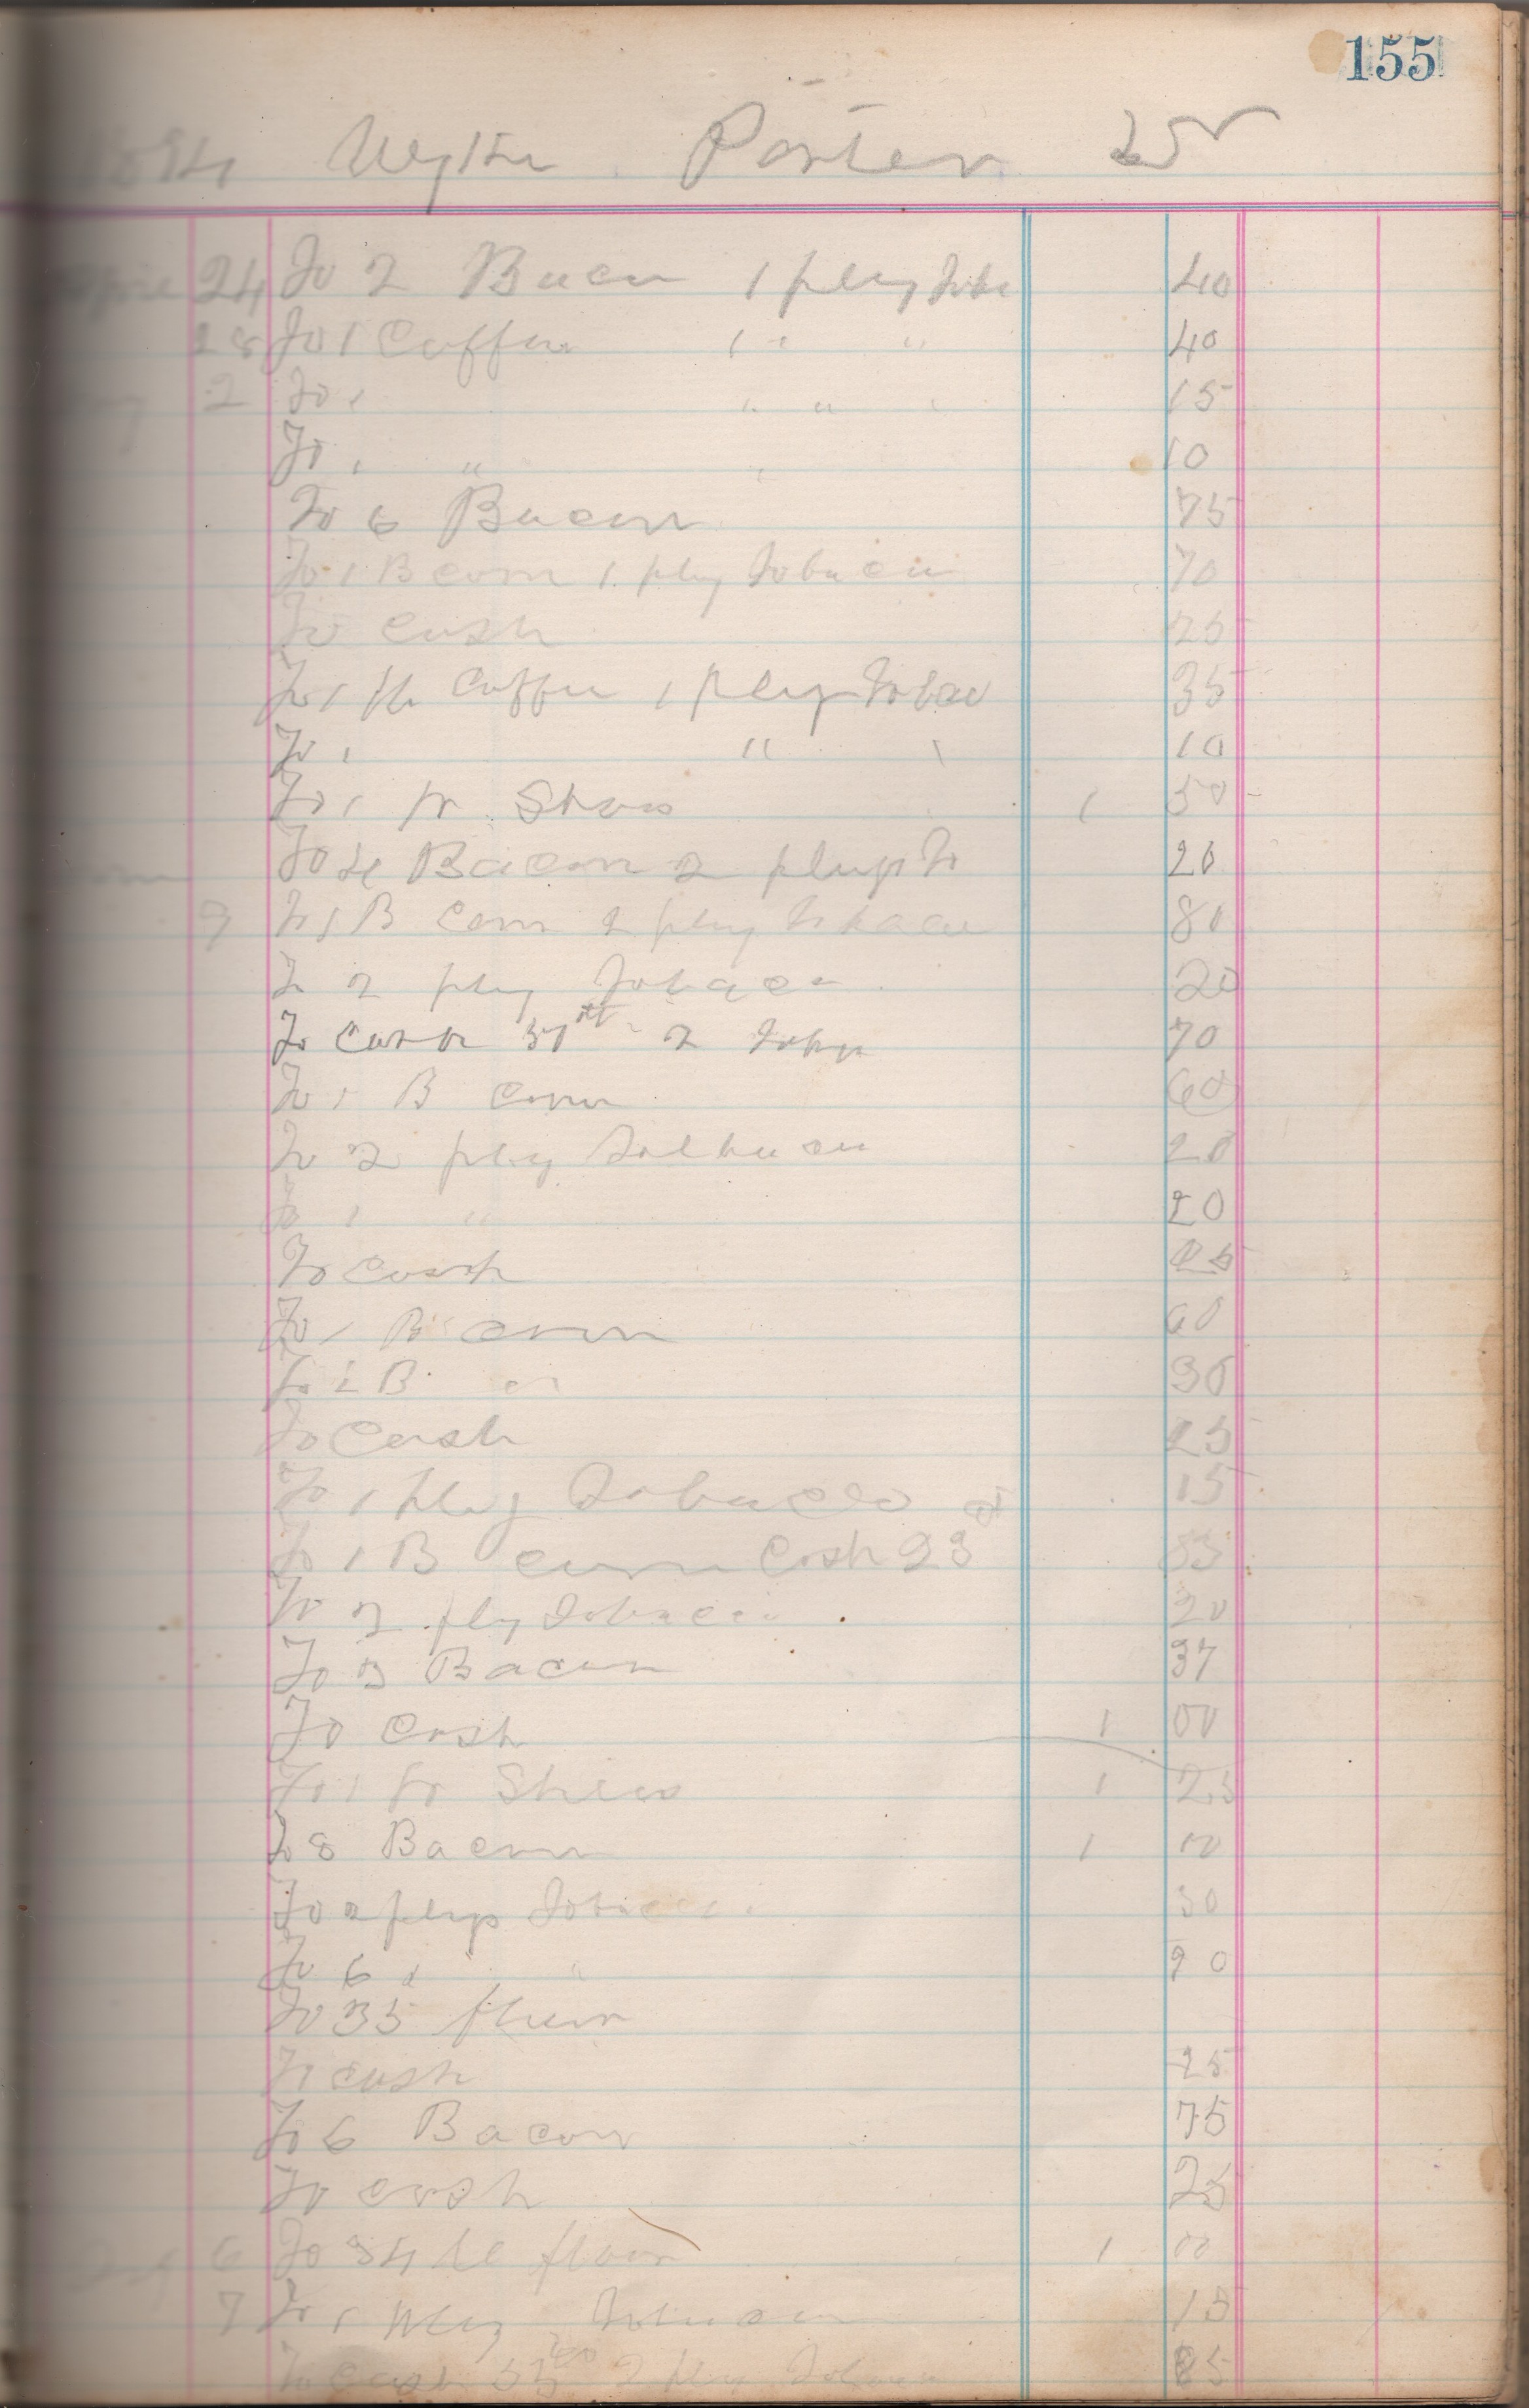 155
Porter 25
24 To 2 Bacn 1 plug Tobc 40
28 To 1 Coffee 1 " " 40
2 To 1 " " " 15
To 1 " " 10
To 6 Bacon 75
To 1 B corn 1 plug Tobacco 70
To Cash 25
To 1 lb Coffee 1 plug Tobac 35
To 1 " " 10
To 1 pr Shoes 1 50
Bacon 2 plugs To 20
9 To 1 B Corn 2 plug Tobacco 80
To 2 plug Tobaco 20
To Cash 50 cts 2 70
To 1 B Corn 60
To 2 plug Tobacco 20
To 1 " 20
To Cash 25
To 1 B corn 60
B 30
To Cash 25
To 1 plug Tobacco 15
To 1 B corn Cash 23 ct
To 2 plug Tobacco 20
To 3 Bacon 37
To Cash 1 00
To 1 pr Shoes 1 25
To 8 Bacon 1 00
To 2 plugs Tobacco 30
To 6 " " 90
To 35 flour
To cash 25
To 6 Bacon 75
To cash 25
6 To 34 lb flour 1 00
7 To 1 plug Tobacco 15
To Cash 2 plug 85